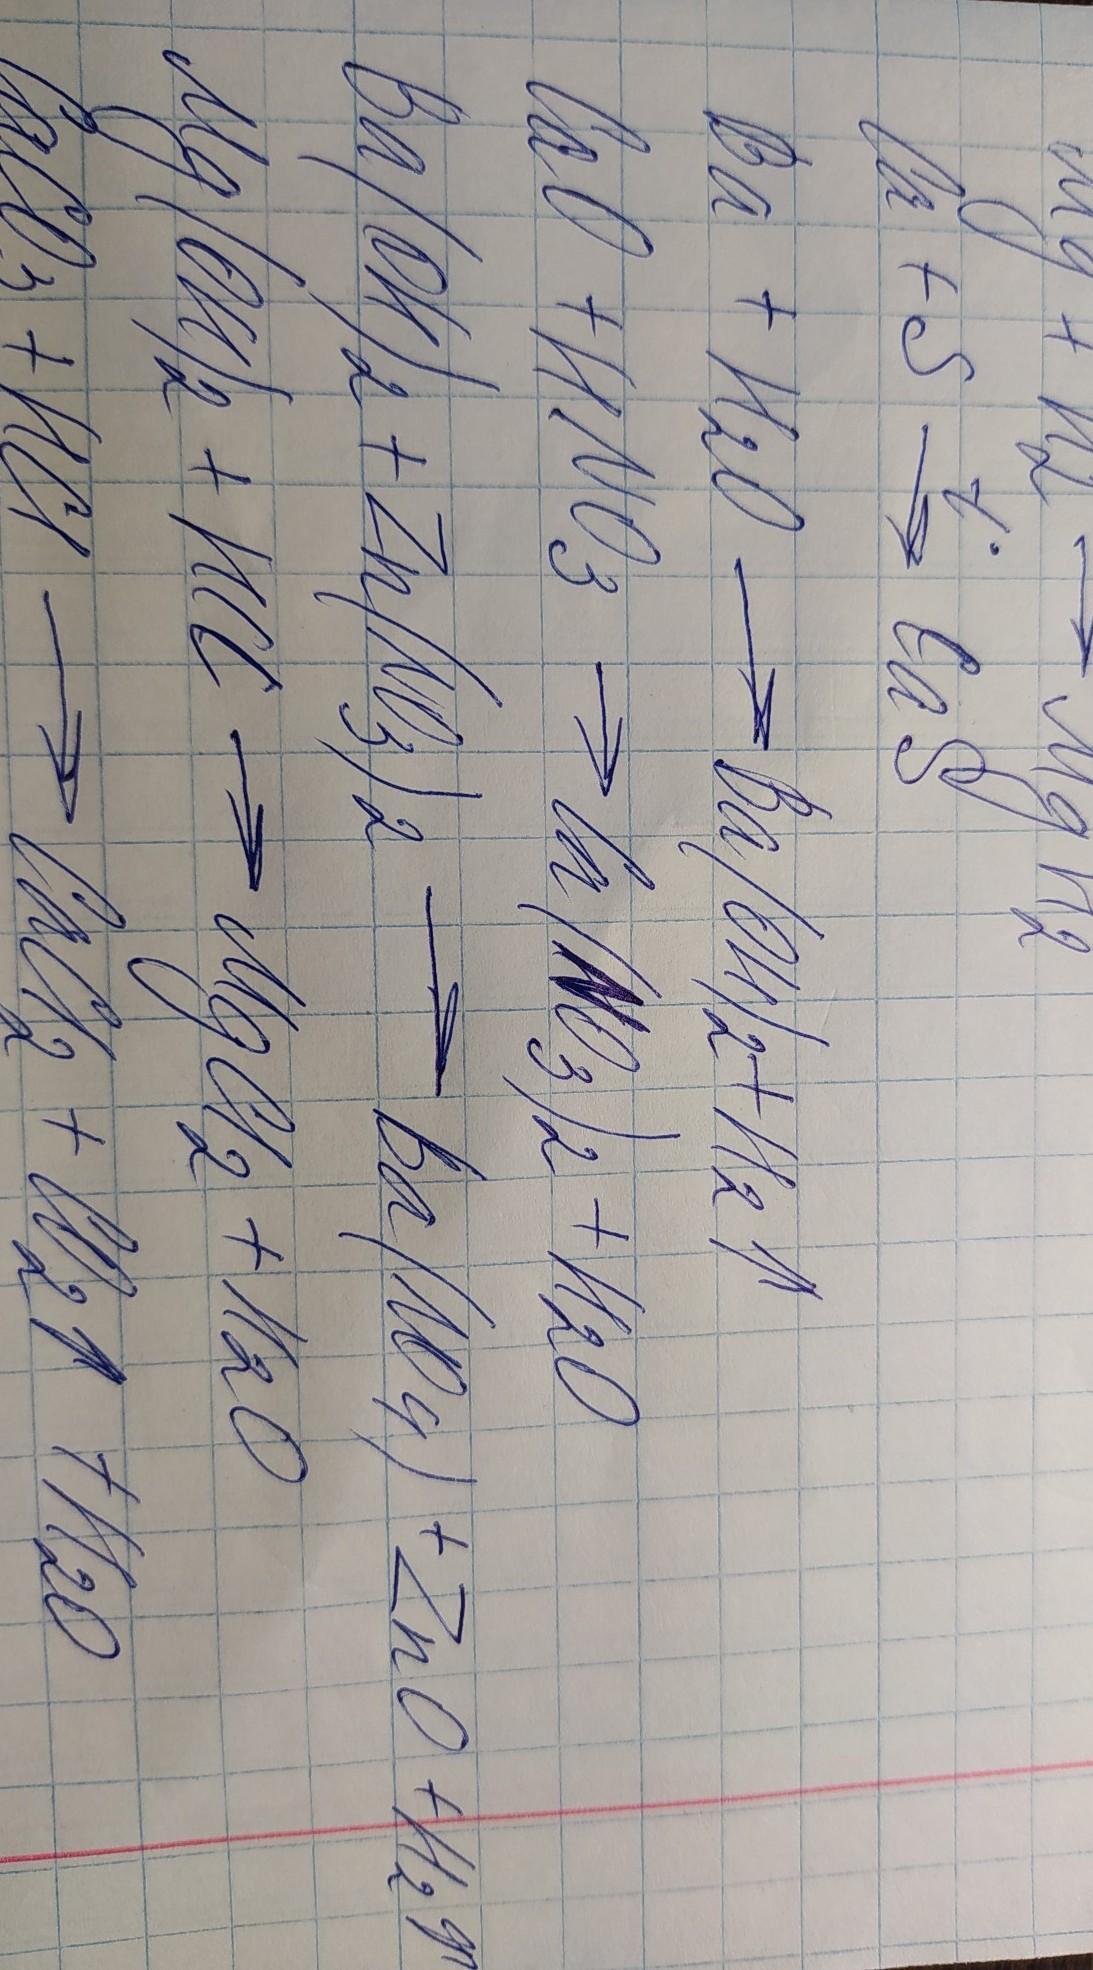 Mg + H2 → MgH2
Ca + S →t° CaS
Ba + H2O → Ba(OH)2 + H2↑
CaO + HNO3 → Ca(NO3)2 + H2O
Ba(OH)2 + Zn(NO3)2 → Ba(NO4) + ZnO + H2↑
Mg(OH)2 + HCl → MgCl2 + H2O
CaCO3 + HCl → CaCl2 + CO2↑ + H2O